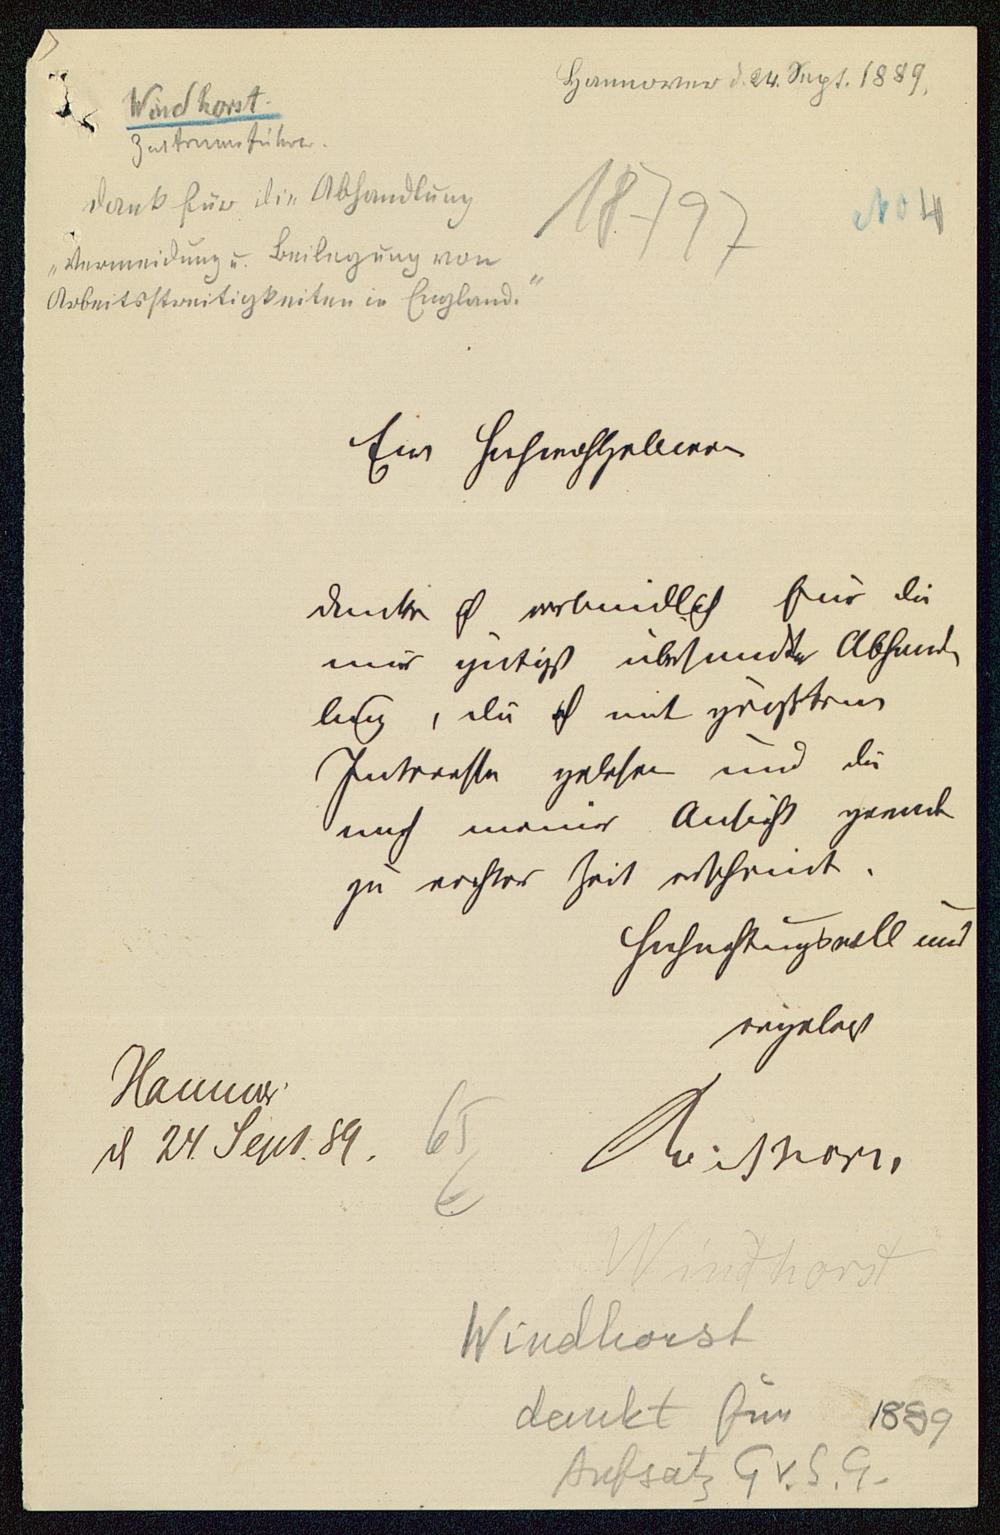 Hannover d. 24. Sept. 1889.
Windhorst.
Zentrumsführer.
Dank für die Abhandlung
„Vermeidung u. Beilegung von
Arbeitsstreitigkeiten in England."
18797
No 4
Euer Hochwohlgeboren
danke ich verbindlich für die
mir gütigst übersandte Abhand
lung, die ich mit größtem
Interesse gelesen und die
nach meiner Ansicht gerade
zu rechter Zeit erscheint.
Hochachtungsvoll und
ergebenst
Hannover
d 24. Sept. 89.
65
Windthorst
Windhorst
Windhorst
dankt für 1889
Aufsatz G v. S. G.